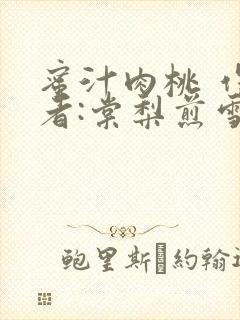 蜜汁肉桃 作
者:棠梨煎雪
鲍里斯�約翰遜